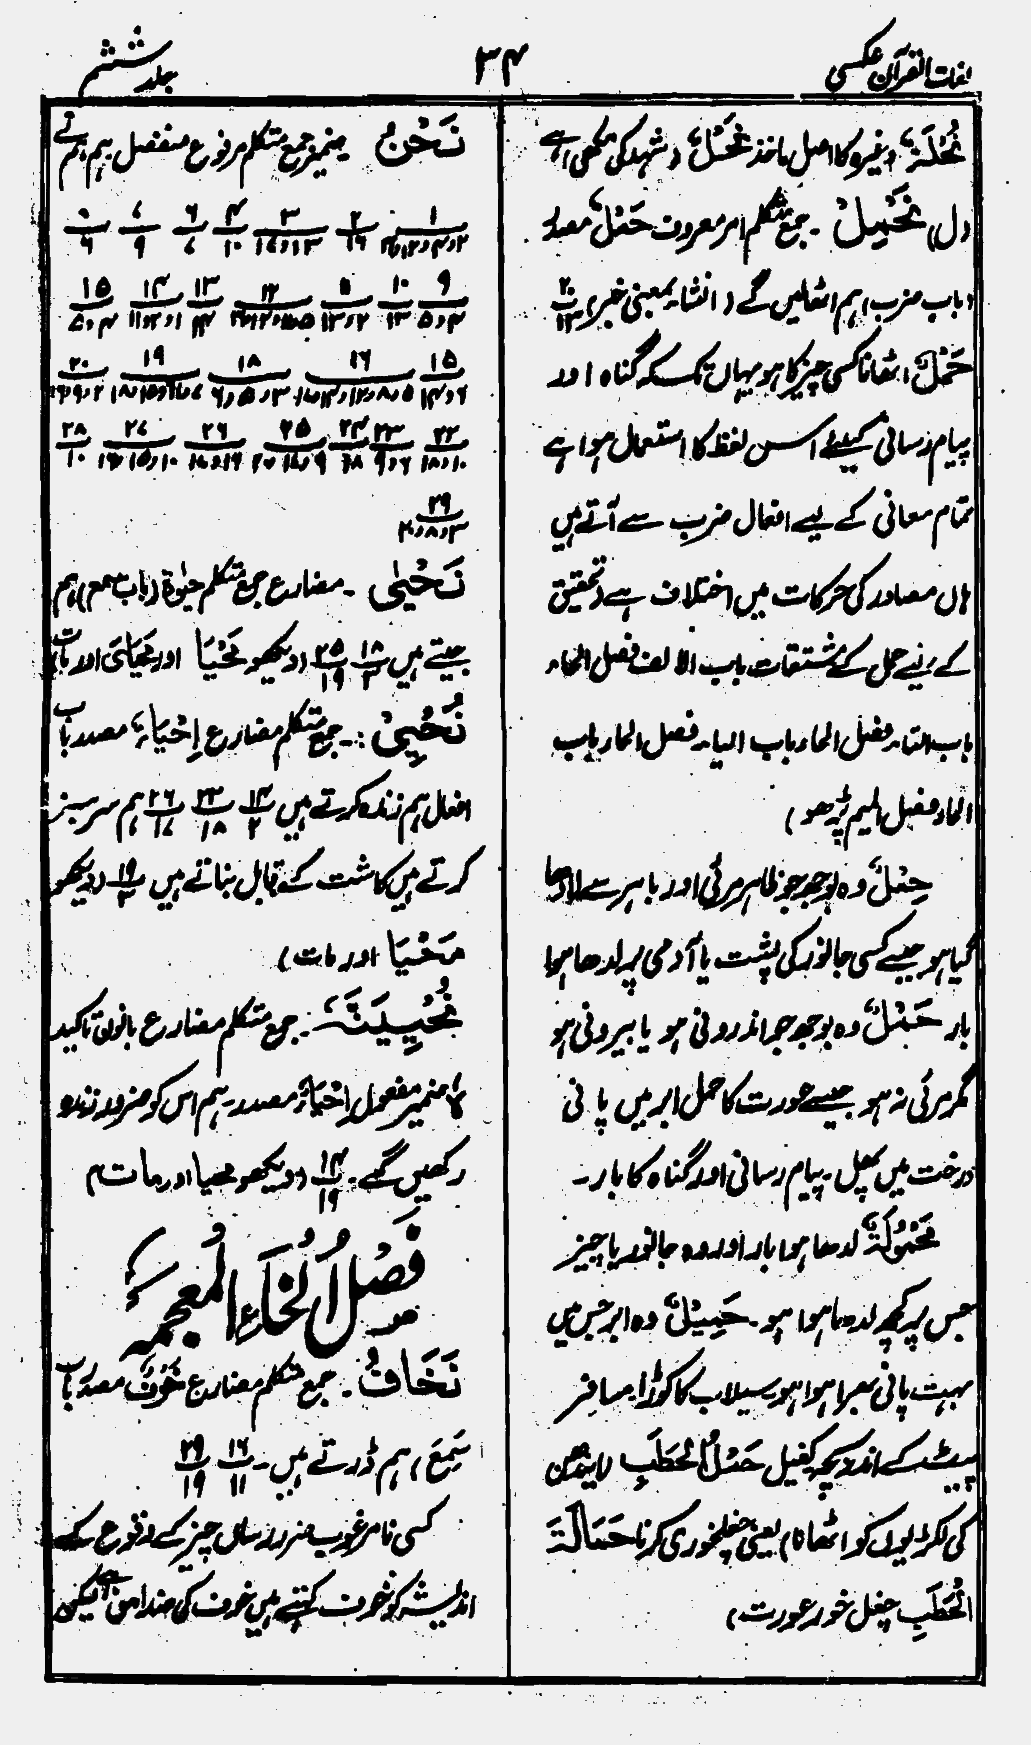 لغات القرآن عکسی
۳۴
جلد ششم
نِحْلَۃً، وغیرہ کا اصل ماخذ نَحْلٌ، (شہد کی مکھی) ہے
(ل) نَحْمِلْ جمع متکلم امر معروف حَمْلٌ مصدر
(باب ضرب) ہم اٹھالیں گے (انشاء بمعنی خبر) ۲۰/۱۳
حَمْلٌ اٹھانا کسی چیز کا ہو یہاں تک کہ گناہ اور
پیام رسانی کیلئے اس لفظ کا استعمال ہوا ہے
تمام معانی کے لیے افعال ضرب سے آتے ہیں
ہاں مصادر کی حرکات میں اختلاف ہے (تحقیق
کے لیے حمل کے مشتقات باب الالف فصل الحاء
باب التاء فصل الحاء باب الیاء فصل الحاء باب
الحاء فصل المیم پڑھو)
حِمْلٌ وہ بوجھ جو ظاہر مرئی اور باہر سے لادھا
گیا ہو جیسے کسی جانور کی پشت یا آدمی پر لدھا ہوا
بار حَمْلٌ وہ بوجھ جو اندرونی ہو یا بیرونی ہو
مگر مرئی نہ ہو جیسے عورت کا حمل ابر میں پانی
درخت میں پھل۔ پیام رسانی اور گناہ کا بار۔
حَمُوْلَۃٌ لدھا ہوا بار اور وہ جانور یا چیز
جس پر کچھ لدھا ہوا ہو۔ حَمِیْلٌ وہ ابر جس میں
بہت پانی بھرا ہوا ہو سیلاب کا کوڑا۔ مسافر
پیٹ کے اندر بچہ کفیل حَمْلُ الْحَطَبِ (ایندھن
کی لکڑیوں کو اٹھانا) یعنی چغلخوری کرنا حَمَّالَۃَ
الْحَطَبِ چغل خور عورت)
نَحْنُ ضمیر جمع متکلم مرفوع منفصل ہم، ہم نے
۱/۲و۴و۱۲و۱۴ ۲/۱۶ ۳/۱۳و۱۷ ۴/۱۰ ۶/۷ ۷/۹ ۹/۶
۹/۴و۵ ۱۰/۱۳ ۱۱/۲و۱۳ ۱۳/۱۴ ۱۴/۱و۲و۱۱ ۱۵/۴و۵
۱۵/۶و۱۴ ۱۸/۳و۵و۶ ۲۰/۲و۹و۱۶
۲۲/۱۰و۱۸ ۲۳/۶و۹ ۲۵/۹و۱۷و۲۰ ۲۶/۱۶و۱۷ ۲۷/۱۰و۱۵و۱۶ ۲۸/۱۰
۲۹/۳و۸و۲۰
نَحْیٰی۔ مضارع جمع متکلم حیٰوۃ (باب سمع) ہم
جیتے ہیں ۱۸/۳ ۲۵/۱۹ (دیکھو نَحْیَا اور مَحْیَایَ اور مات)
نُحْیِیْ:۔ جمع متکلم مضارع اِحْیَاءٌ، مصدر باب
افعال ہم زندہ کرتے ہیں ۱۴/۲ ۲۲/۱۸ ۲۶/۱۷ ہم سرسبز
کرتے ہیں کاشت کے قابل بناتے ہیں ۱۹/۳ (دیکھو
مَحْیَا اور مات)
نُحْیِیَنَّہٗ:۔ جمع متکلم مضارع بانون تاکید
ہٗ ضمیر مفعول اِحْیَاءٌ مصدر۔ ہم اس کو ضرور زندہ
رکھیں گے۔ ۱۴/۱۹ (دیکھو محیا اور مات)
فَصْلُ الْخَاءِ الْمُعْجَمَہ
نَخَافُ۔ جمع متکلم مضارع خَوْفٌ مصدر (باب
سَمِعَ) ہم ڈرتے ہیں۔ ۱۶/۱۱ ۲۹/۱۹
کسی نامرغوب ضرر رساں چیز کے وقوع کے
اندیشہ کو خوف کہتے ہیں خوف کی ضد امن ہے لیکن